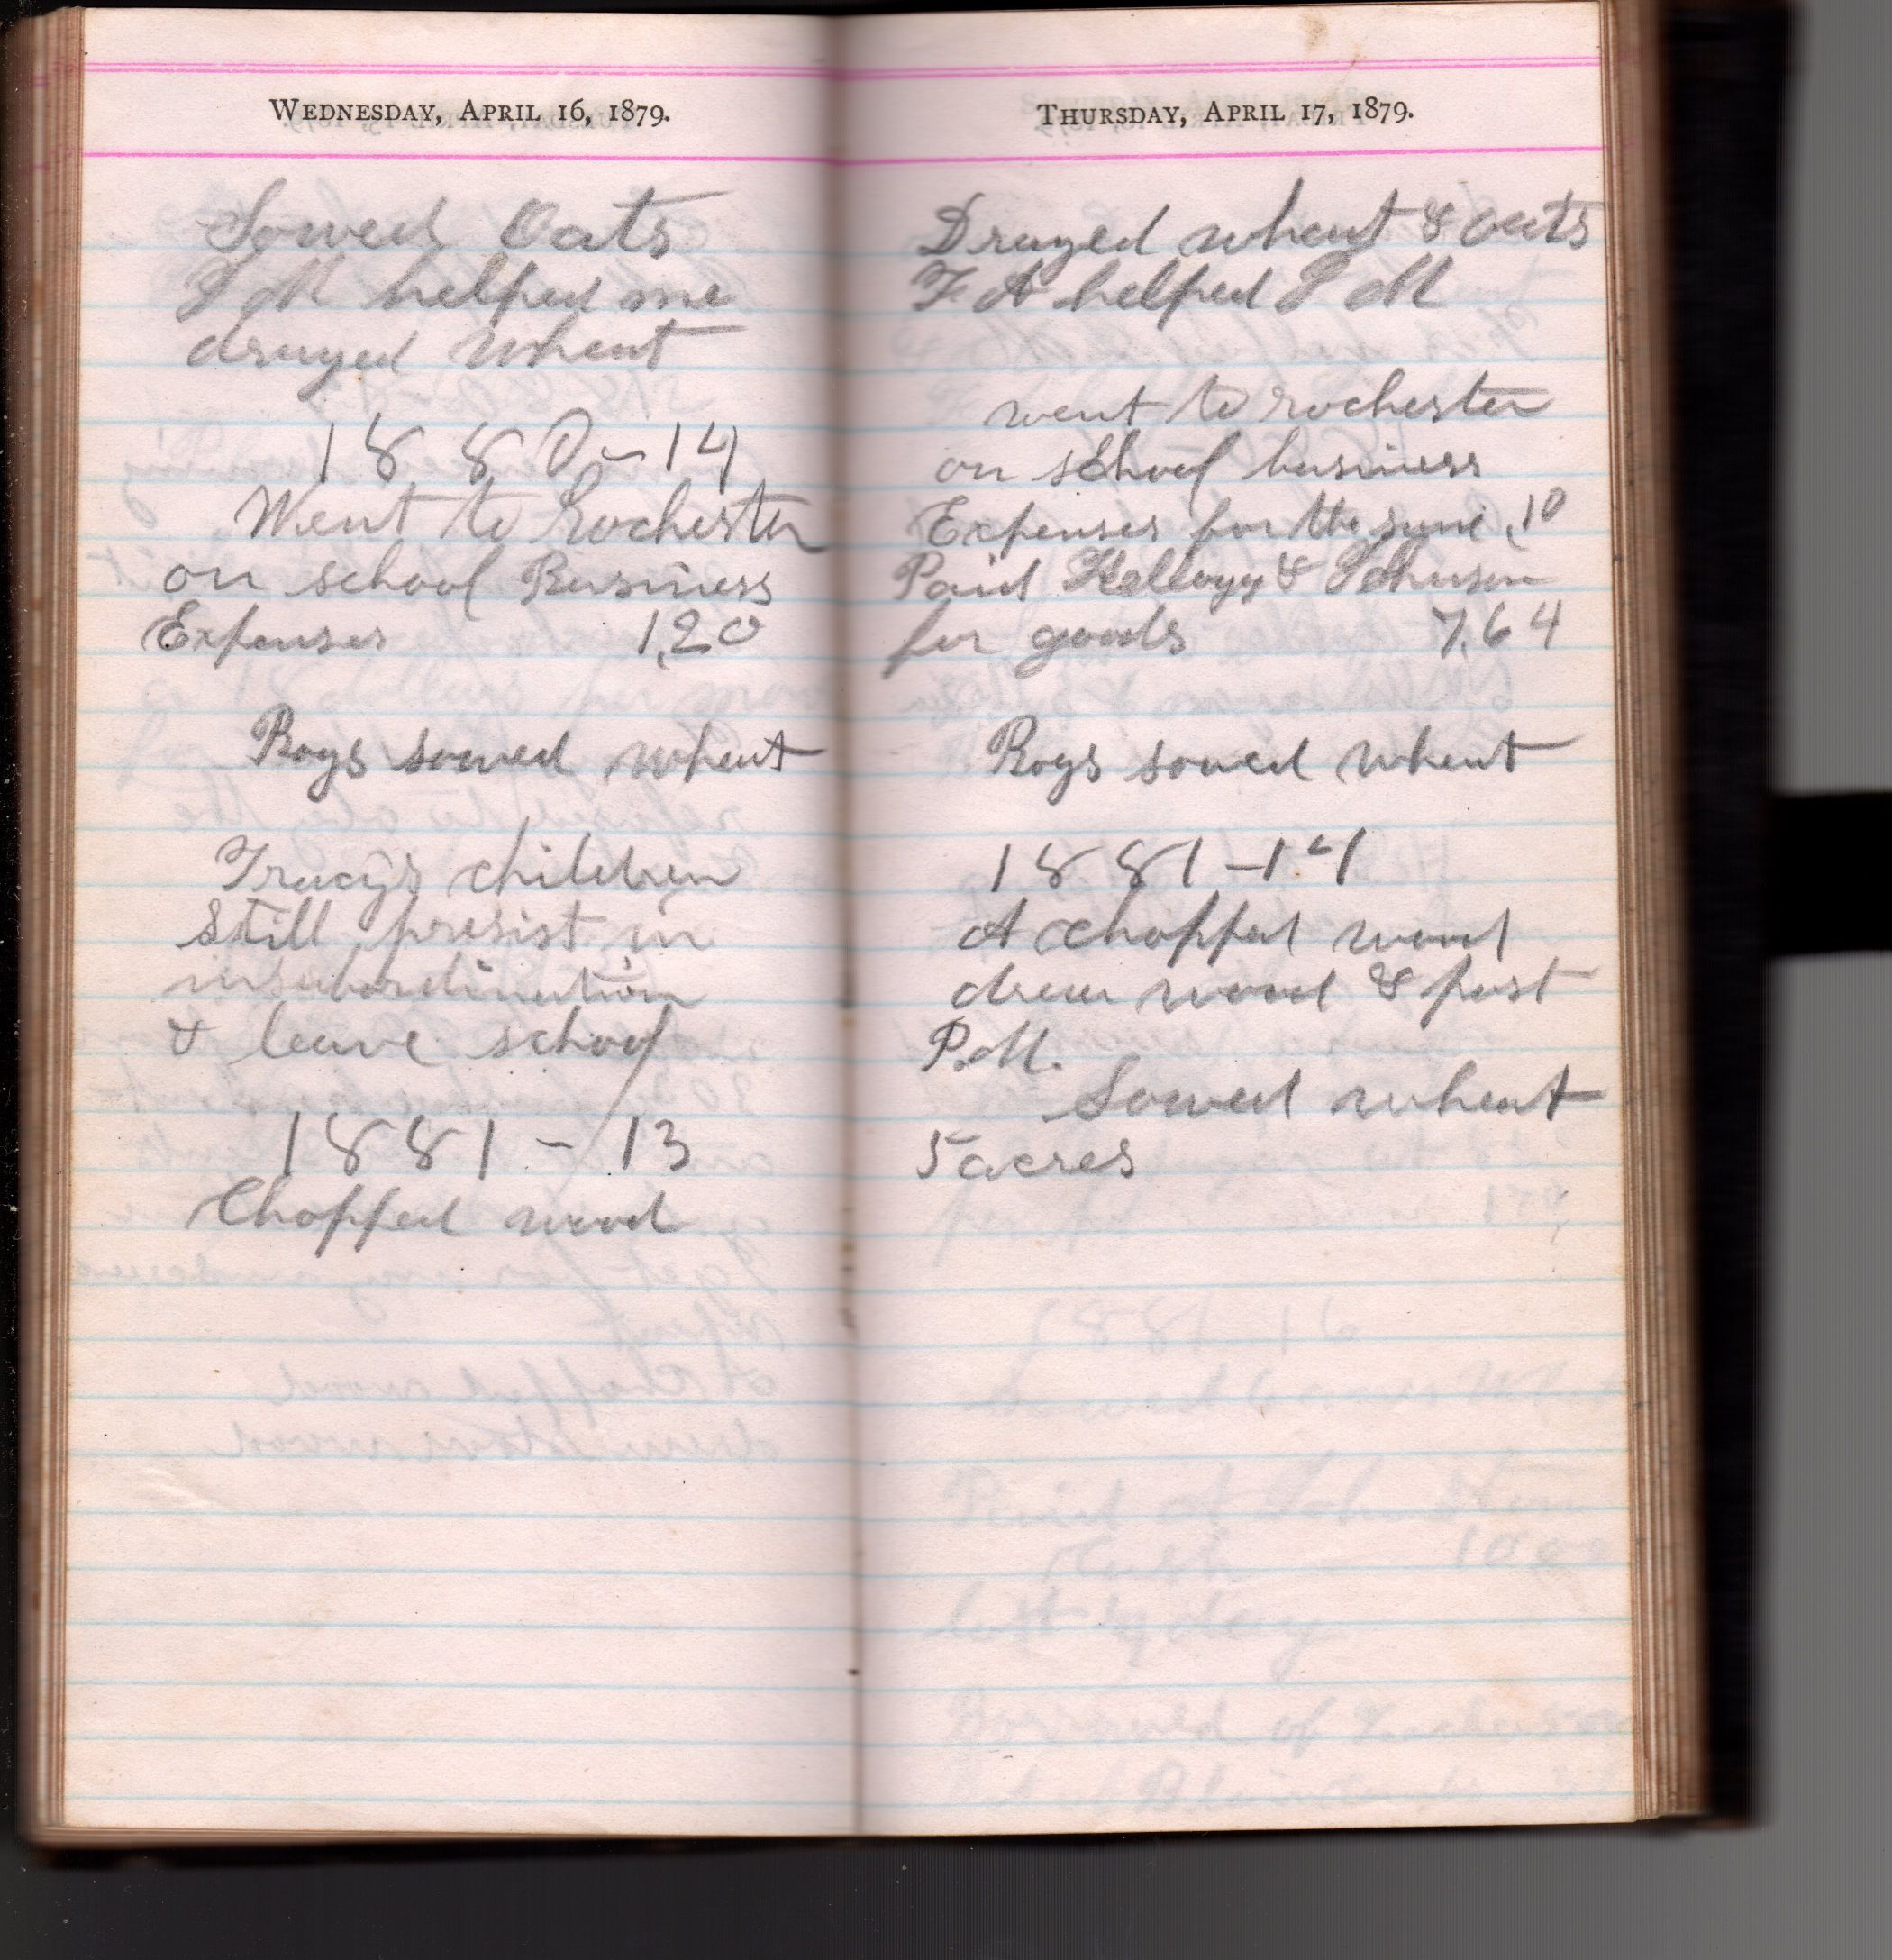 WEDNESDAY, APRIL 16, 1879.
Sowed Oats
P M helped me
draged wheat
1880-14
Went to Rochester
on school Business
Expenses 1,20
Boys sowed wheat
Tracy's children
still presist in
insubordination
& leave school
1881-13
Chopped wood
THURSDAY, APRIL 17, 1879.
Draged wheat & oats
F A helped P M
went to rochester
on school business
Expenses for the same ,10
Paid Kellogg & Johnson
for goods 7,64
Boys sowed wheat
1881-14
A chopped wood
drew wood & post
P.M.
Sowed wheat
5 acres